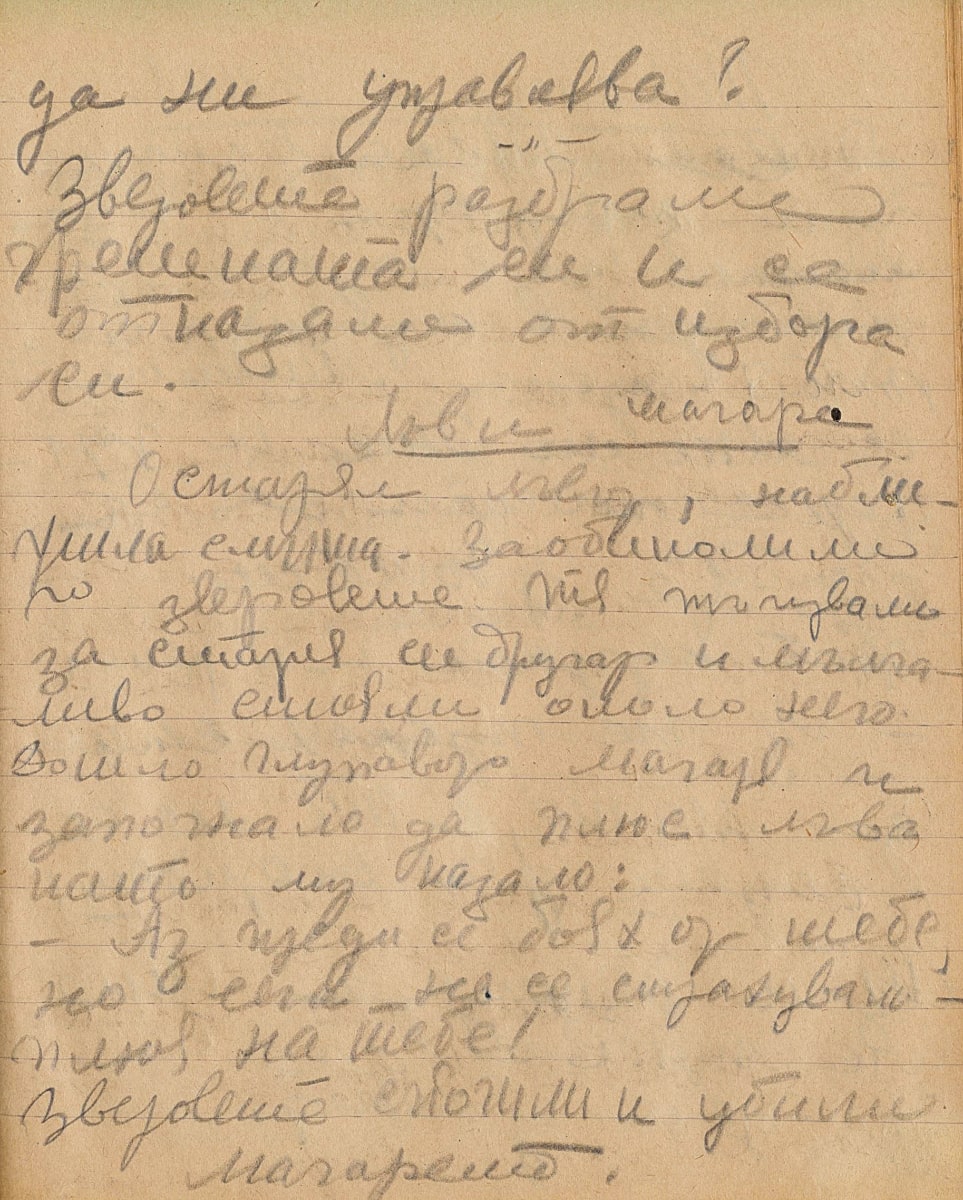 да ни управлява?
–„–
Зверовете разбрали
грешката си и са
отказали от избора
си.
Лъв и магаре
Остарял лъвът, набли-
жила смъртта. Заобиколили
го зверовете. Тя тъгували
за стария си другар и мълча-
ливо стояли около него.
Дошло глупаво магаре и
започнало да плюе лъва
като му казало:
– Аз преди се боях от тебе,
но сега не се страхувам –
плюя на тебе!
Зверовете скочили и убили
магарето.